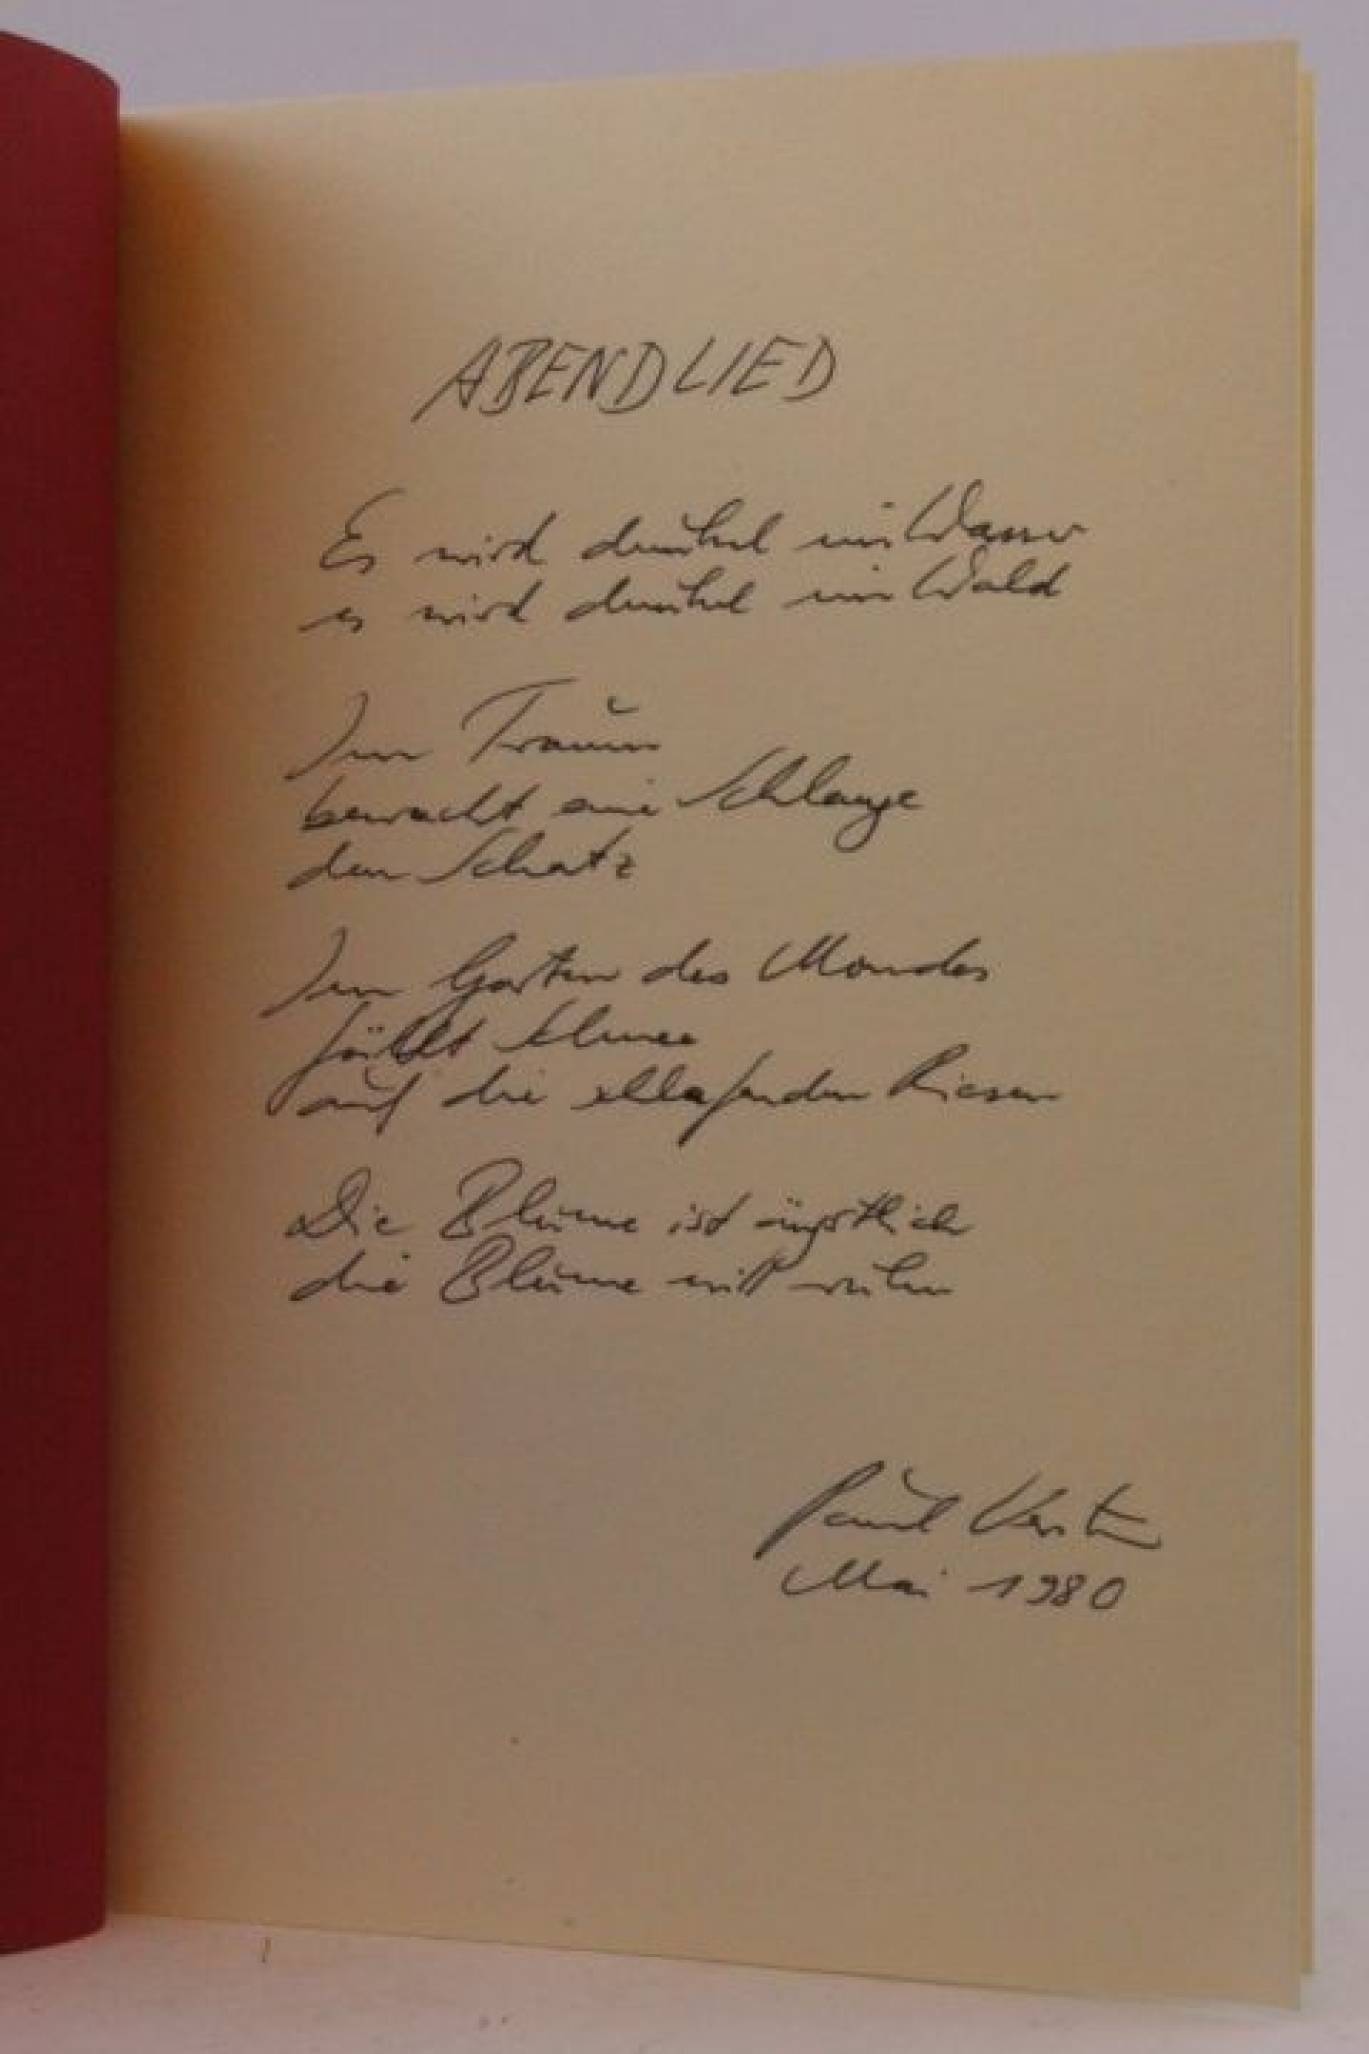 ABENDLIED
Es wird dunkel im Wasser
es wird dunkel im Wald
Im Traum
bewacht eine Schlange
den Schatz
Im Garten des Mondes
fällt Schnee
auf die schlafenden Riesen
Die Blume ist ängstlich
die Blume will ruhn
Paul Kersten
Mai 1980